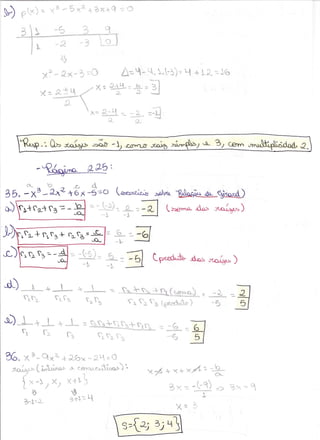 b) p(x) = x³-5x²+3x+9 = 0
3 | 1 -5 3 9
1 -2 -3 |0|
x²-2x-3=0 Δ=4-4.1.(-3)=4+12=16
x = 2±4 / 2
x = 2+4/2 = 6/2 = 3
x = 2-4/2 = -2/2 = -1
Resp.: As raízes são -1, como raiz simples, e 3, com multiplicidade 2.
- Página 225:
35. -x³-2x²+6x-5=0 (exercício sobre Relações de Girard)
a) r₁+r₂+r₃ = -b/a = -(-2)/-1 = 2/-1 = -2 (soma das raízes)
b) r₁r₂ + r₁r₃ + r₂r₃ = c/a = 6/-1 = -6
c) r₁r₂r₃ = -d/a = -(-5)/-1 = 5/-1 = -5 (produto das raízes)
d) 1/r₁r₂ + 1/r₁r₃ + 1/r₂r₃ = r₁+r₂+r₃ (soma) / r₁r₂r₃ (produto) = -2/-5 = 2/5
e) 1/r₁ + 1/r₂ + 1/r₃ = r₂r₃+r₁r₃+r₁r₂ / r₁r₂r₃ = -6/-5 = 6/5
36. x³-9x²+26x-24=0
raízes (inteiras e consecutivas):
{x-1, x, x+1}
3-1=2 3+1=4
x-1+x+x+1 = -b/a
3x = -(-9)/1 ⇒ 3x = 9
x = 3
S={2; 3; 4}